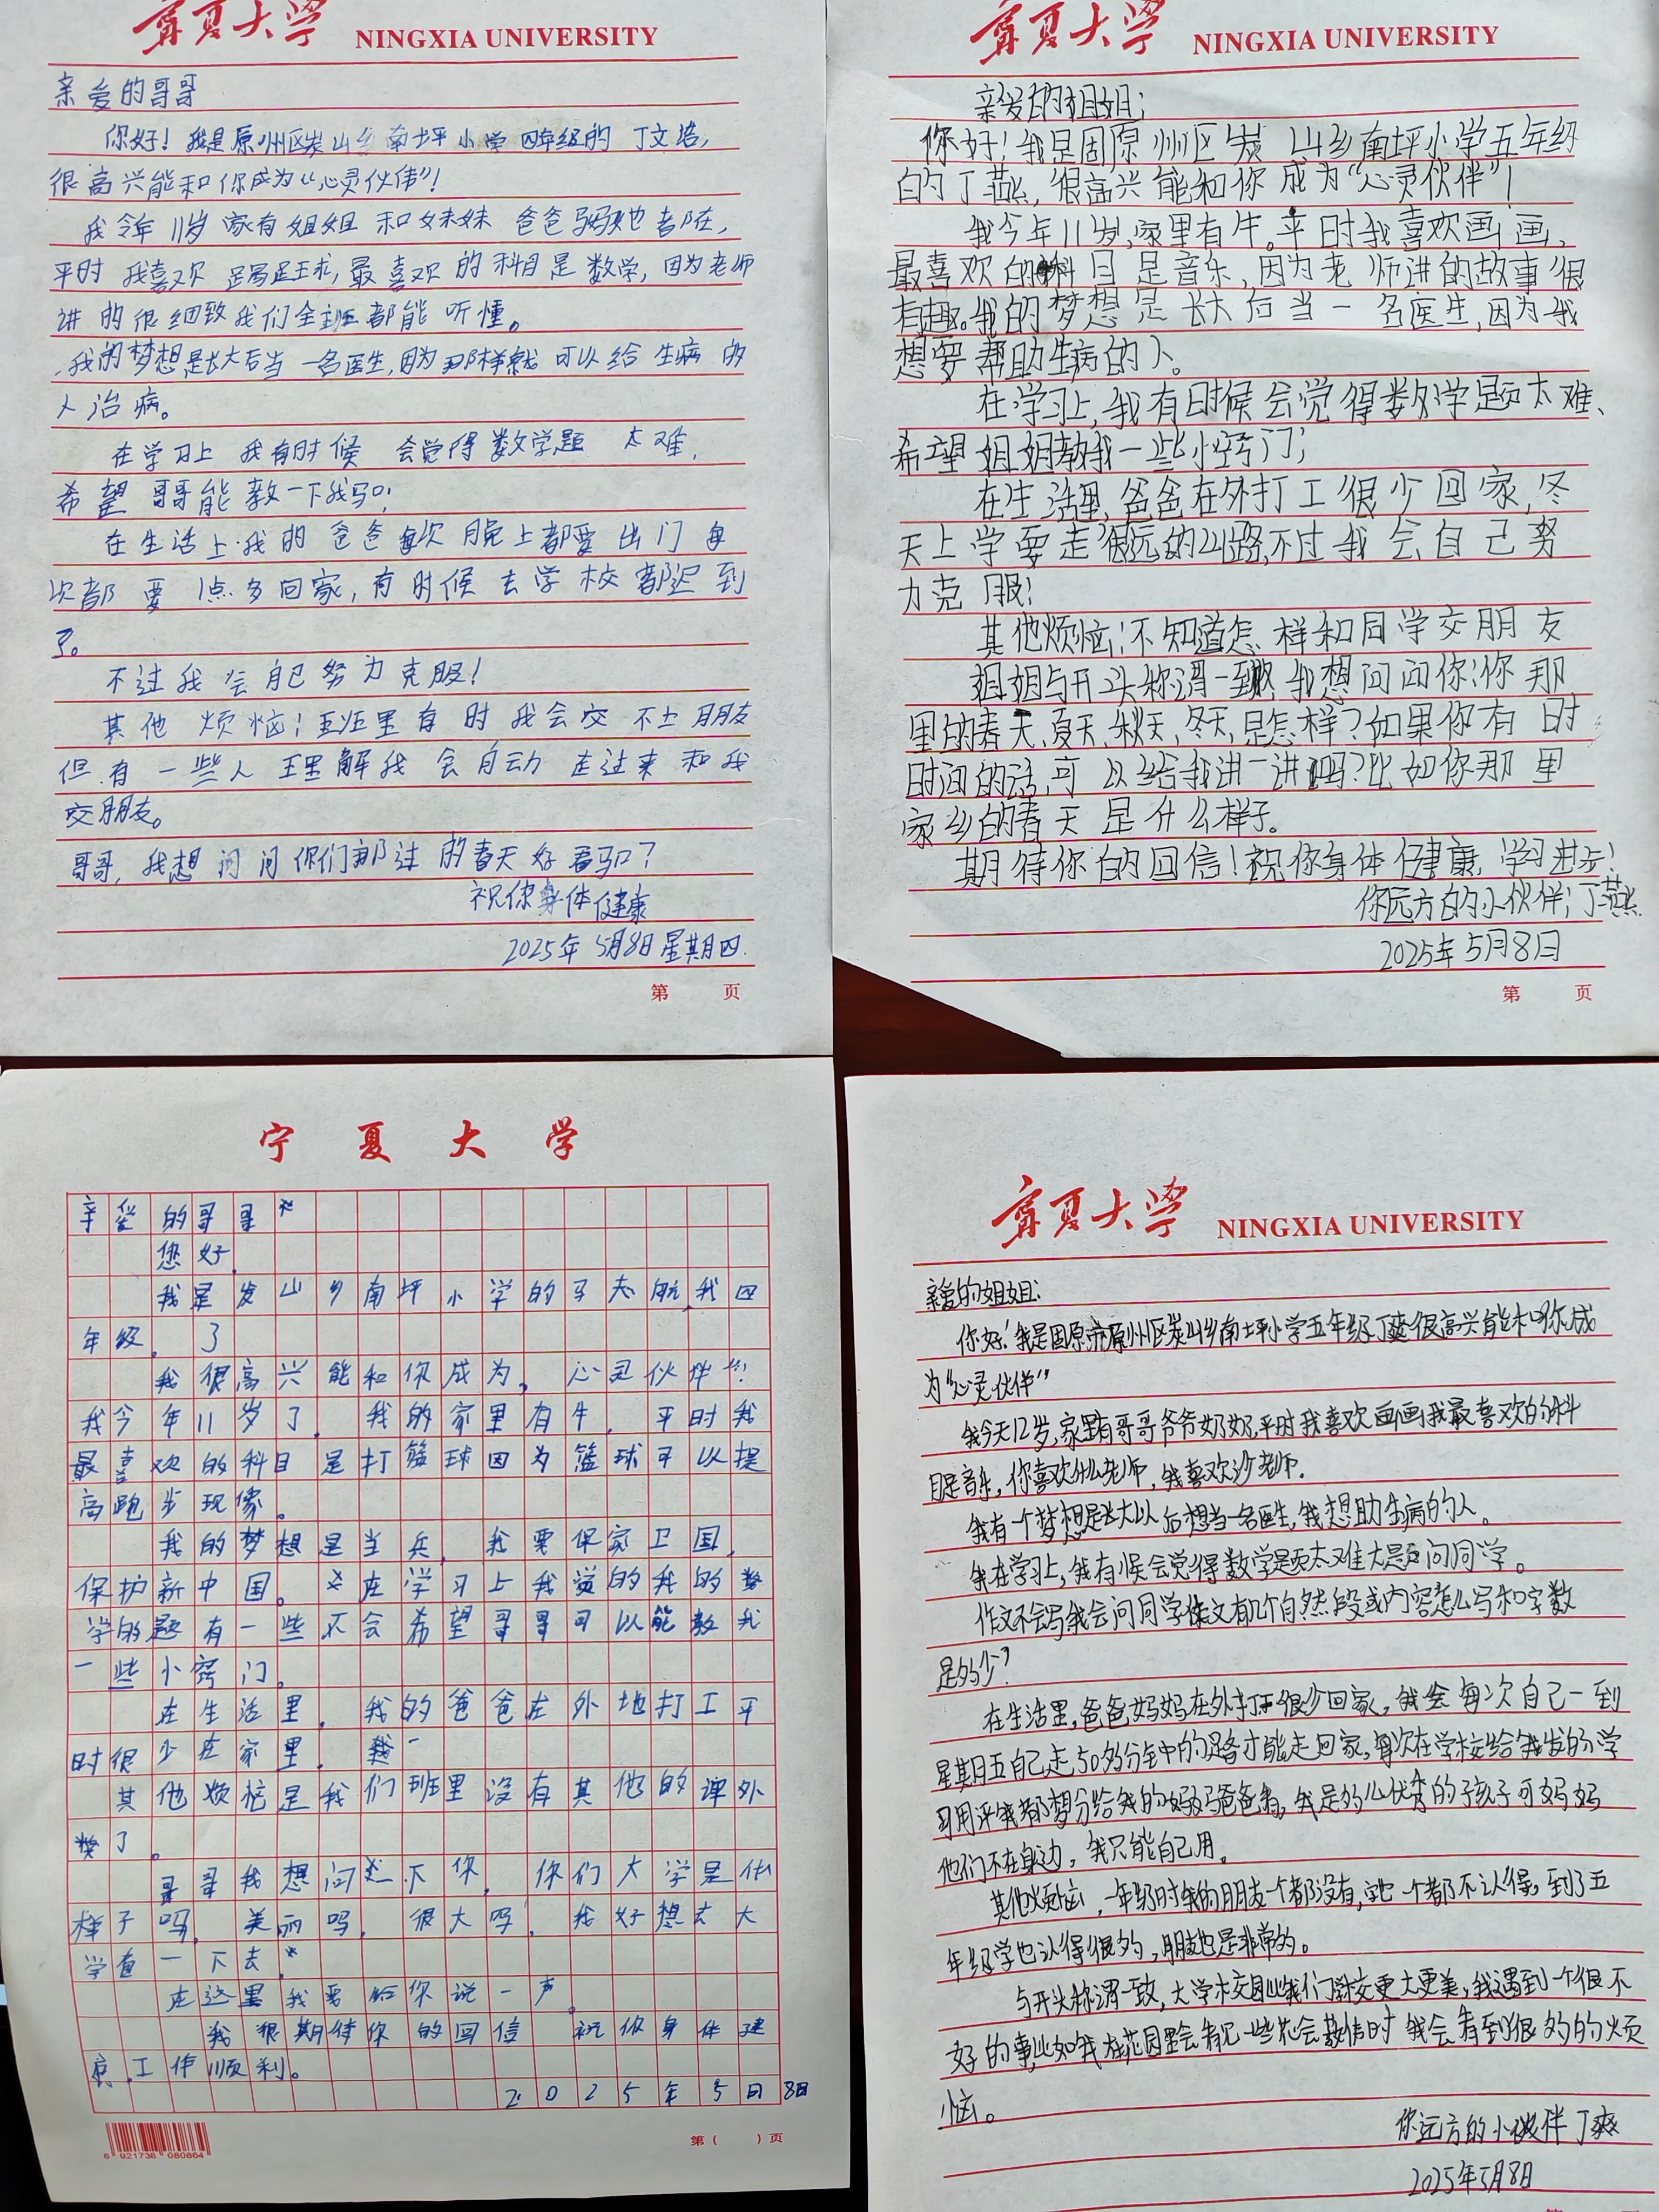 宁夏大学 NINGXIA UNIVERSITY
亲爱的哥哥
你好！我是原州区炭山乡南坪小学四年级的丁文塔，
很高兴能和你成为“心灵伙伴”！
我今年11岁家有姐姐和妹妹爸爸妈妈他都在，
平时我喜欢踢足球，最喜欢的科目是数学，因为老师
讲的很细致我们全班都能听懂。
我的梦想是长大后当一名医生，因为那样就可以给生病的
人治病。
在学习上我有时候会觉得数学题太难，
希望哥哥能教一下我吗！
在生活上我的爸爸每次晚上都要出门每
次都要1点多回家，有时候去学校都迟到
了。
不过我会自己努力克服！
其他烦恼：班里有时我会交不上朋友
但有一些人理解我会自动走过来和我
交朋友。
哥哥，我想问问你们那过的春天好看吗？
祝你身体健康
2025年5月8日星期四.
第 页
宁夏大学 NINGXIA UNIVERSITY
亲爱的姐姐：
你好！我是固原州区炭山乡南坪小学五年级
的丁燕，很高兴能和你成为“心灵伙伴”！
我今年11岁，家里有牛。平时我喜欢画画，
最喜欢的科目是音乐，因为老师讲的故事很
有趣。我的梦想是长大后当一名医生，因为我
想要帮助生病的人。
在学习上，我有时候会觉得数学题太难、
希望姐姐教我一些小窍门；
在生活里，爸爸在外打工很少回家，冬
天上学要走很远的山路，不过我会自己努
力克服！
其他烦恼：不知道怎样和同学交朋友
姐姐与开头称谓一致，我想问问你：你那
里的春天、夏天、秋天、冬天，是怎样？如果你有时
时间的话，可以给我讲一讲吗？比如你那里
家乡的春天是什么样子。
期待你的回信！祝你身体健康，学习进步！
你远方的小伙伴；丁燕
2025年5月8日
第 页
宁夏大学
亲爱的哥哥
您好.
我是炭山乡南坪小学的马志航,我四
年级. 了
我很高兴能和你成为,心灵伙伴!!!
我今年11岁了. 我的家里有牛. 平时我
最喜欢的科目是打篮球因为篮球可以提
高跑步现像。
我的梦想是当兵, 我要保家卫国,
保护新中国。在学习上我觉的我的数
学的题有一些不会希望哥哥可以能教我
一些小窍门。
在生活里, 我的爸爸在外地打工平
时很少在家里.
其他烦恼是我们班里没有其他的课外
了。
哥哥我想问下你, 你们大学是什么
样子吗, 美丽吗, 很大吗, 我好想去大
学看一下去.
在这里我要给你说一声.
我很期待你的回信 祝你身体健
康.工作顺利。
2025年5月8日
6 921738 080864
第( )页
宁夏大学 NINGXIA UNIVERSITY
亲爱的姐姐：
你好！我是固原市原州区炭山乡南坪小学五年级丁爽很高兴能和你成
为“心灵伙伴”
我今天12岁，家里有哥哥爷爷奶奶，平时我喜欢画画我最喜欢的科
目是音乐，你喜欢什么老师，我喜欢沙老师.
我有一个梦想是长大以后想当一名医生，我想助生病的人。
我在学习上，我有候会觉得数学是题太难大是后问同学。
作文不会写我会问同学作文有几个自然段或内容怎么写和字数
是多少？
在生活里，爸爸妈妈在外打工很少回家，我会每次自己一到
星期五自己走50多分钟的路才能走回家，每次在学校给我发的学
习用评我都想分给我的妈妈爸爸看，我是多么优秀的子孩子可妈妈
他们不在身边，我只能自己用。
其他烦恼，一年级时我的朋友一个都没有，一个都不认得，到了五
年级学也认得很多，朋友也是非常多。
与开头称谓一致，大学校园比我们学校更大更美，我遇到一个很不
好的事，比如我在花园里会看见一些花会敬情时我会看到很多的烦
恼。
你远方的小伙伴丁爽
2025年5月8日